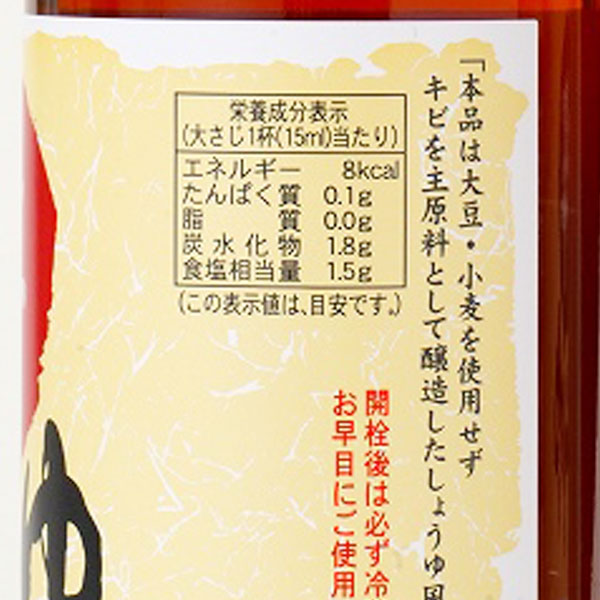 「本品は大豆・小麦を使用せず
キビを主原料として醸造したしょうゆ風
栄養成分表示
(大さじ1杯(15ml)当たり)
エネルギー 8kcal
たんぱく質 0.1g
脂質 0.0g
炭水化物 1.8g
食塩相当量 1.5g
(この表示値は、目安です。)
開栓後は必ず冷
お早目にご使用
ゆ